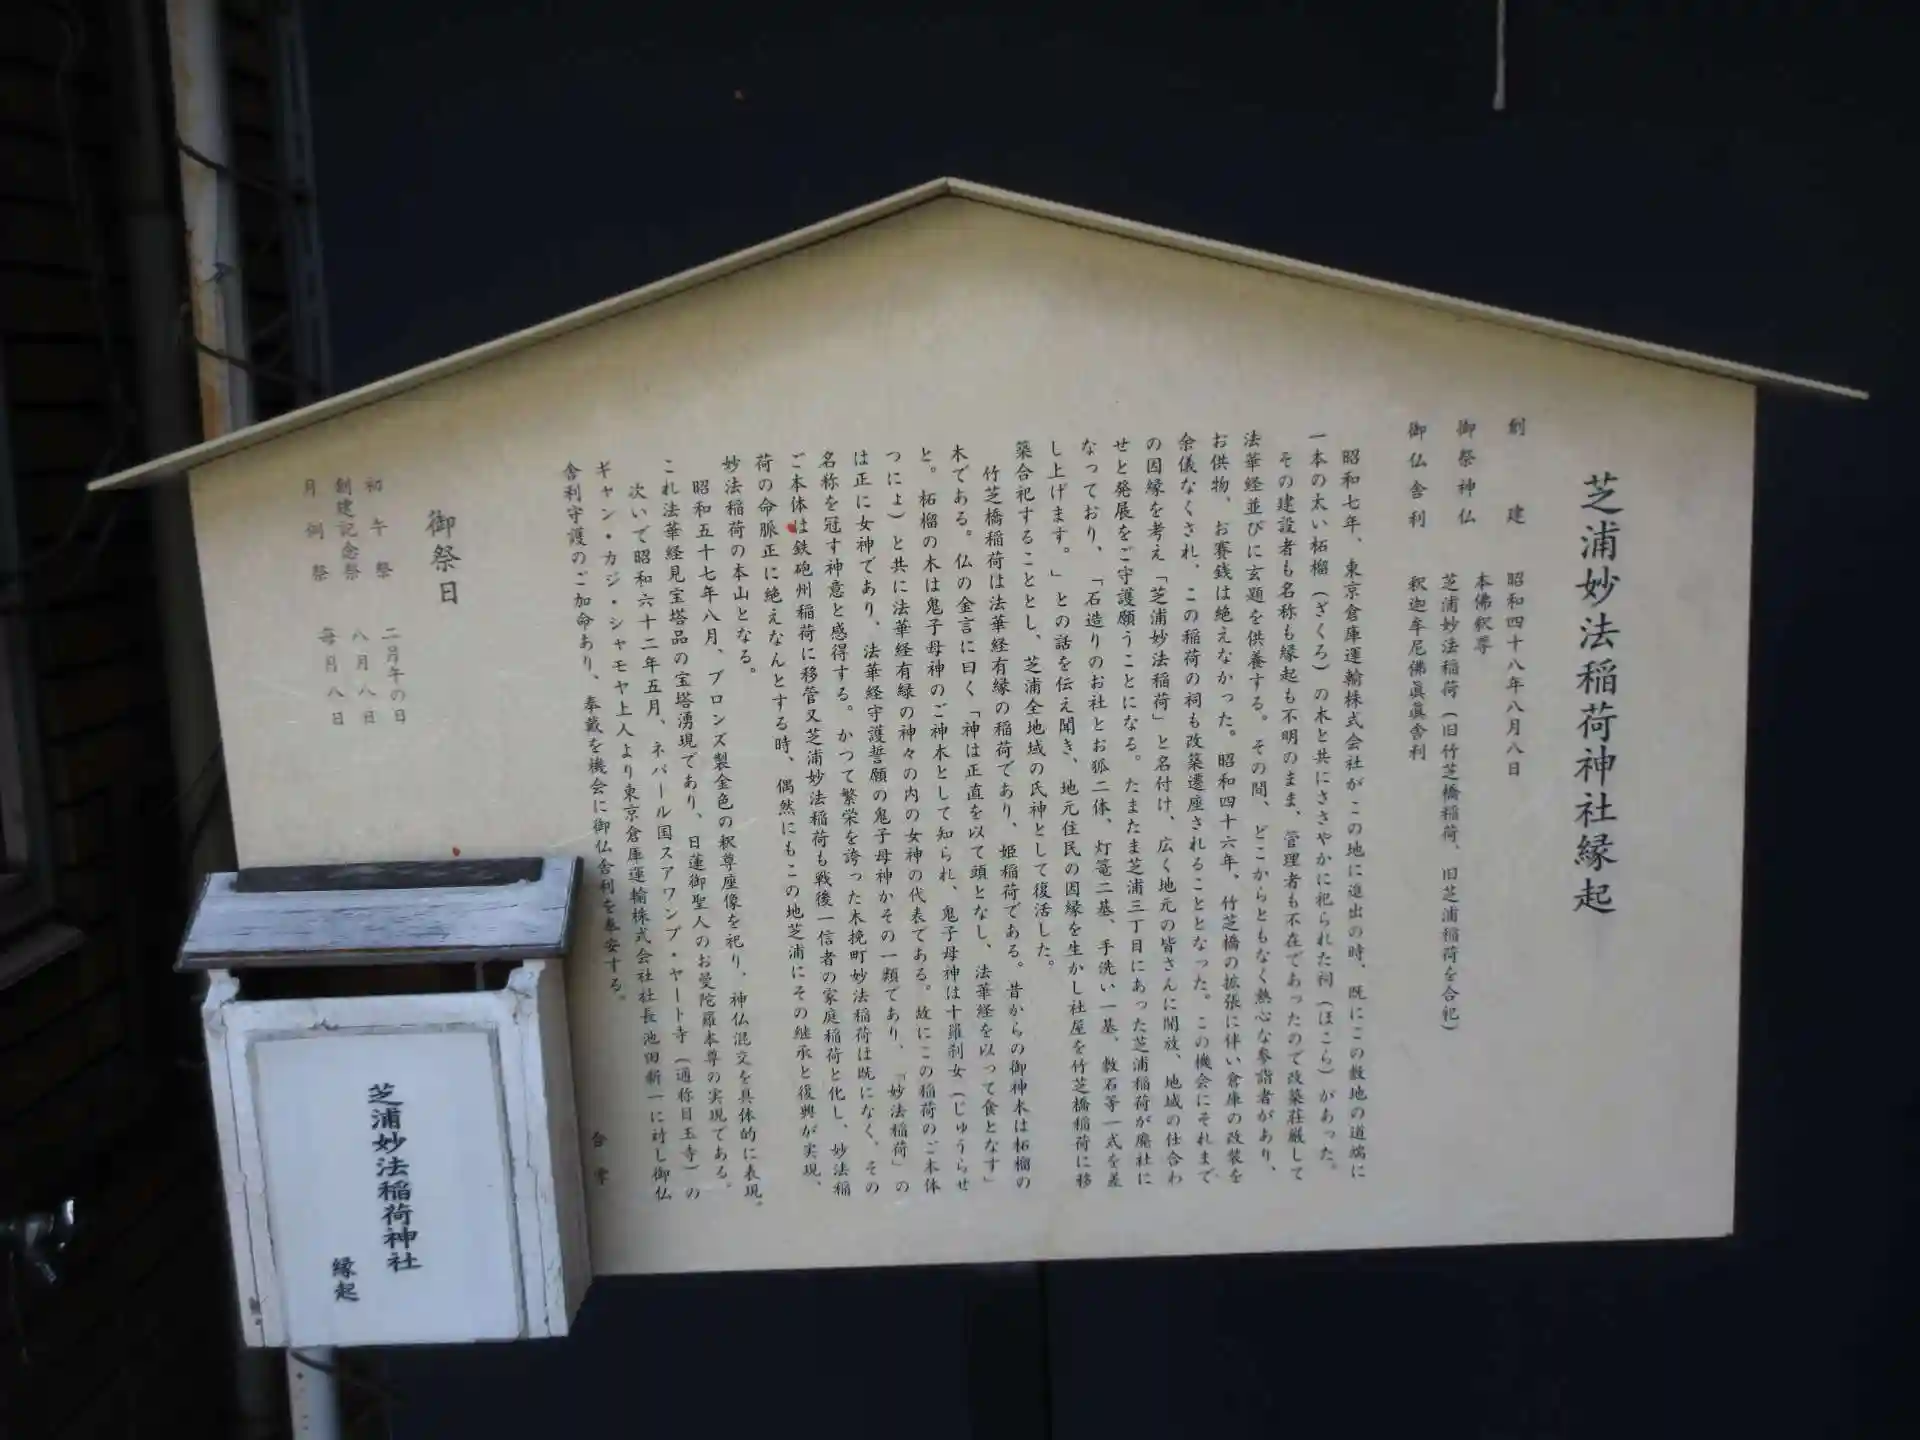 芝浦妙法稲荷神社縁起
創建 昭和四十八年八月八日
御祭神仏 本佛釈尊
芝浦妙法稲荷（旧竹芝橋稲荷、旧芝浦稲荷を合祀）
御仏舎利 釈迦牟尼佛眞眞舎利
昭和七年、東京倉庫運輸株式会社がこの地に進出の時、既にこの敷地の道端に
一本の太い柘榴（ざくろ）の木と共にささやかに祀られた祠（ほこら）があった。
その建設者も名称も縁起も不明のまま、管理者も不在であったので改築荘厳して
法華経並びに玄題を供養する。その間、どこからともなく熱心な参詣者があり、
お供物、お賽銭は絶えなかった。昭和四十六年、竹芝橋の拡張に伴い倉庫の改装を
余儀なくされ、この稲荷の祠も改築遷座されることとなった。この機会にそれまで
の因縁を考え「芝浦妙法稲荷」と名付け、広く地元の皆さんに開放、地域の仕合わ
せと発展をご守護願うことになる。たまたま芝浦三丁目にあった芝浦稲荷が廃社に
なっており、「石造りのお社とお狐二体、灯篭二基、手洗い一基、敷石等一式を差
し上げます。」との話を伝え聞き、地元住民の因縁を生かし社屋を竹芝橋稲荷に移
築合祀することとし、芝浦全地域の氏神として復活した。
竹芝橋稲荷は法華経有縁の稲荷であり、姫稲荷である。昔からの御神木は柘榴の
木である。仏の金言に曰く「神は正直を以て頭となし、法華経を以って食となす」
と。柘榴の木は鬼子母神のご神木として知られ、鬼子母神は十羅刹女（じゅうらせ
つにょ）と共に法華経有縁の神々の内の女神の代表である。故にこの稲荷のご本体
は正に女神であり、法華経守護誓願の鬼子母神かその一類であり、「妙法稲荷」の
名称を冠す神意と感得する。かつて繁栄を誇った木挽町妙法稲荷は既になく、その
ご本体は鉄砲州稲荷に移管又芝浦妙法稲荷も戦後一信者の家庭稲荷と化し、妙法稲
荷の命脈正に絶えなんとする時、偶然にもこの地芝浦にその継承と復興が実現、
妙法稲荷の本山となる。
昭和五十七年八月、ブロンズ製金色の釈尊座像を祀り、神仏混交を具体的に表現。
これ法華経見宝塔品の宝塔湧現であり、日蓮御聖人のお曼陀羅本尊の実現である。
次いで昭和六十二年五月、ネパール国スアワンブ・ヤート寺（通称目玉寺）の
ギャン・カジ・シャモヤ上人より東京倉庫運輸株式会社社長池田新一に対し御仏
舎利守護のご加命あり、奉戴を機会に御仏舎利を奉安する。
合掌
御祭日
初午祭 二月午の日
創建記念祭 八月八日
月例祭 毎月八日
芝浦妙法稲荷神社
縁起